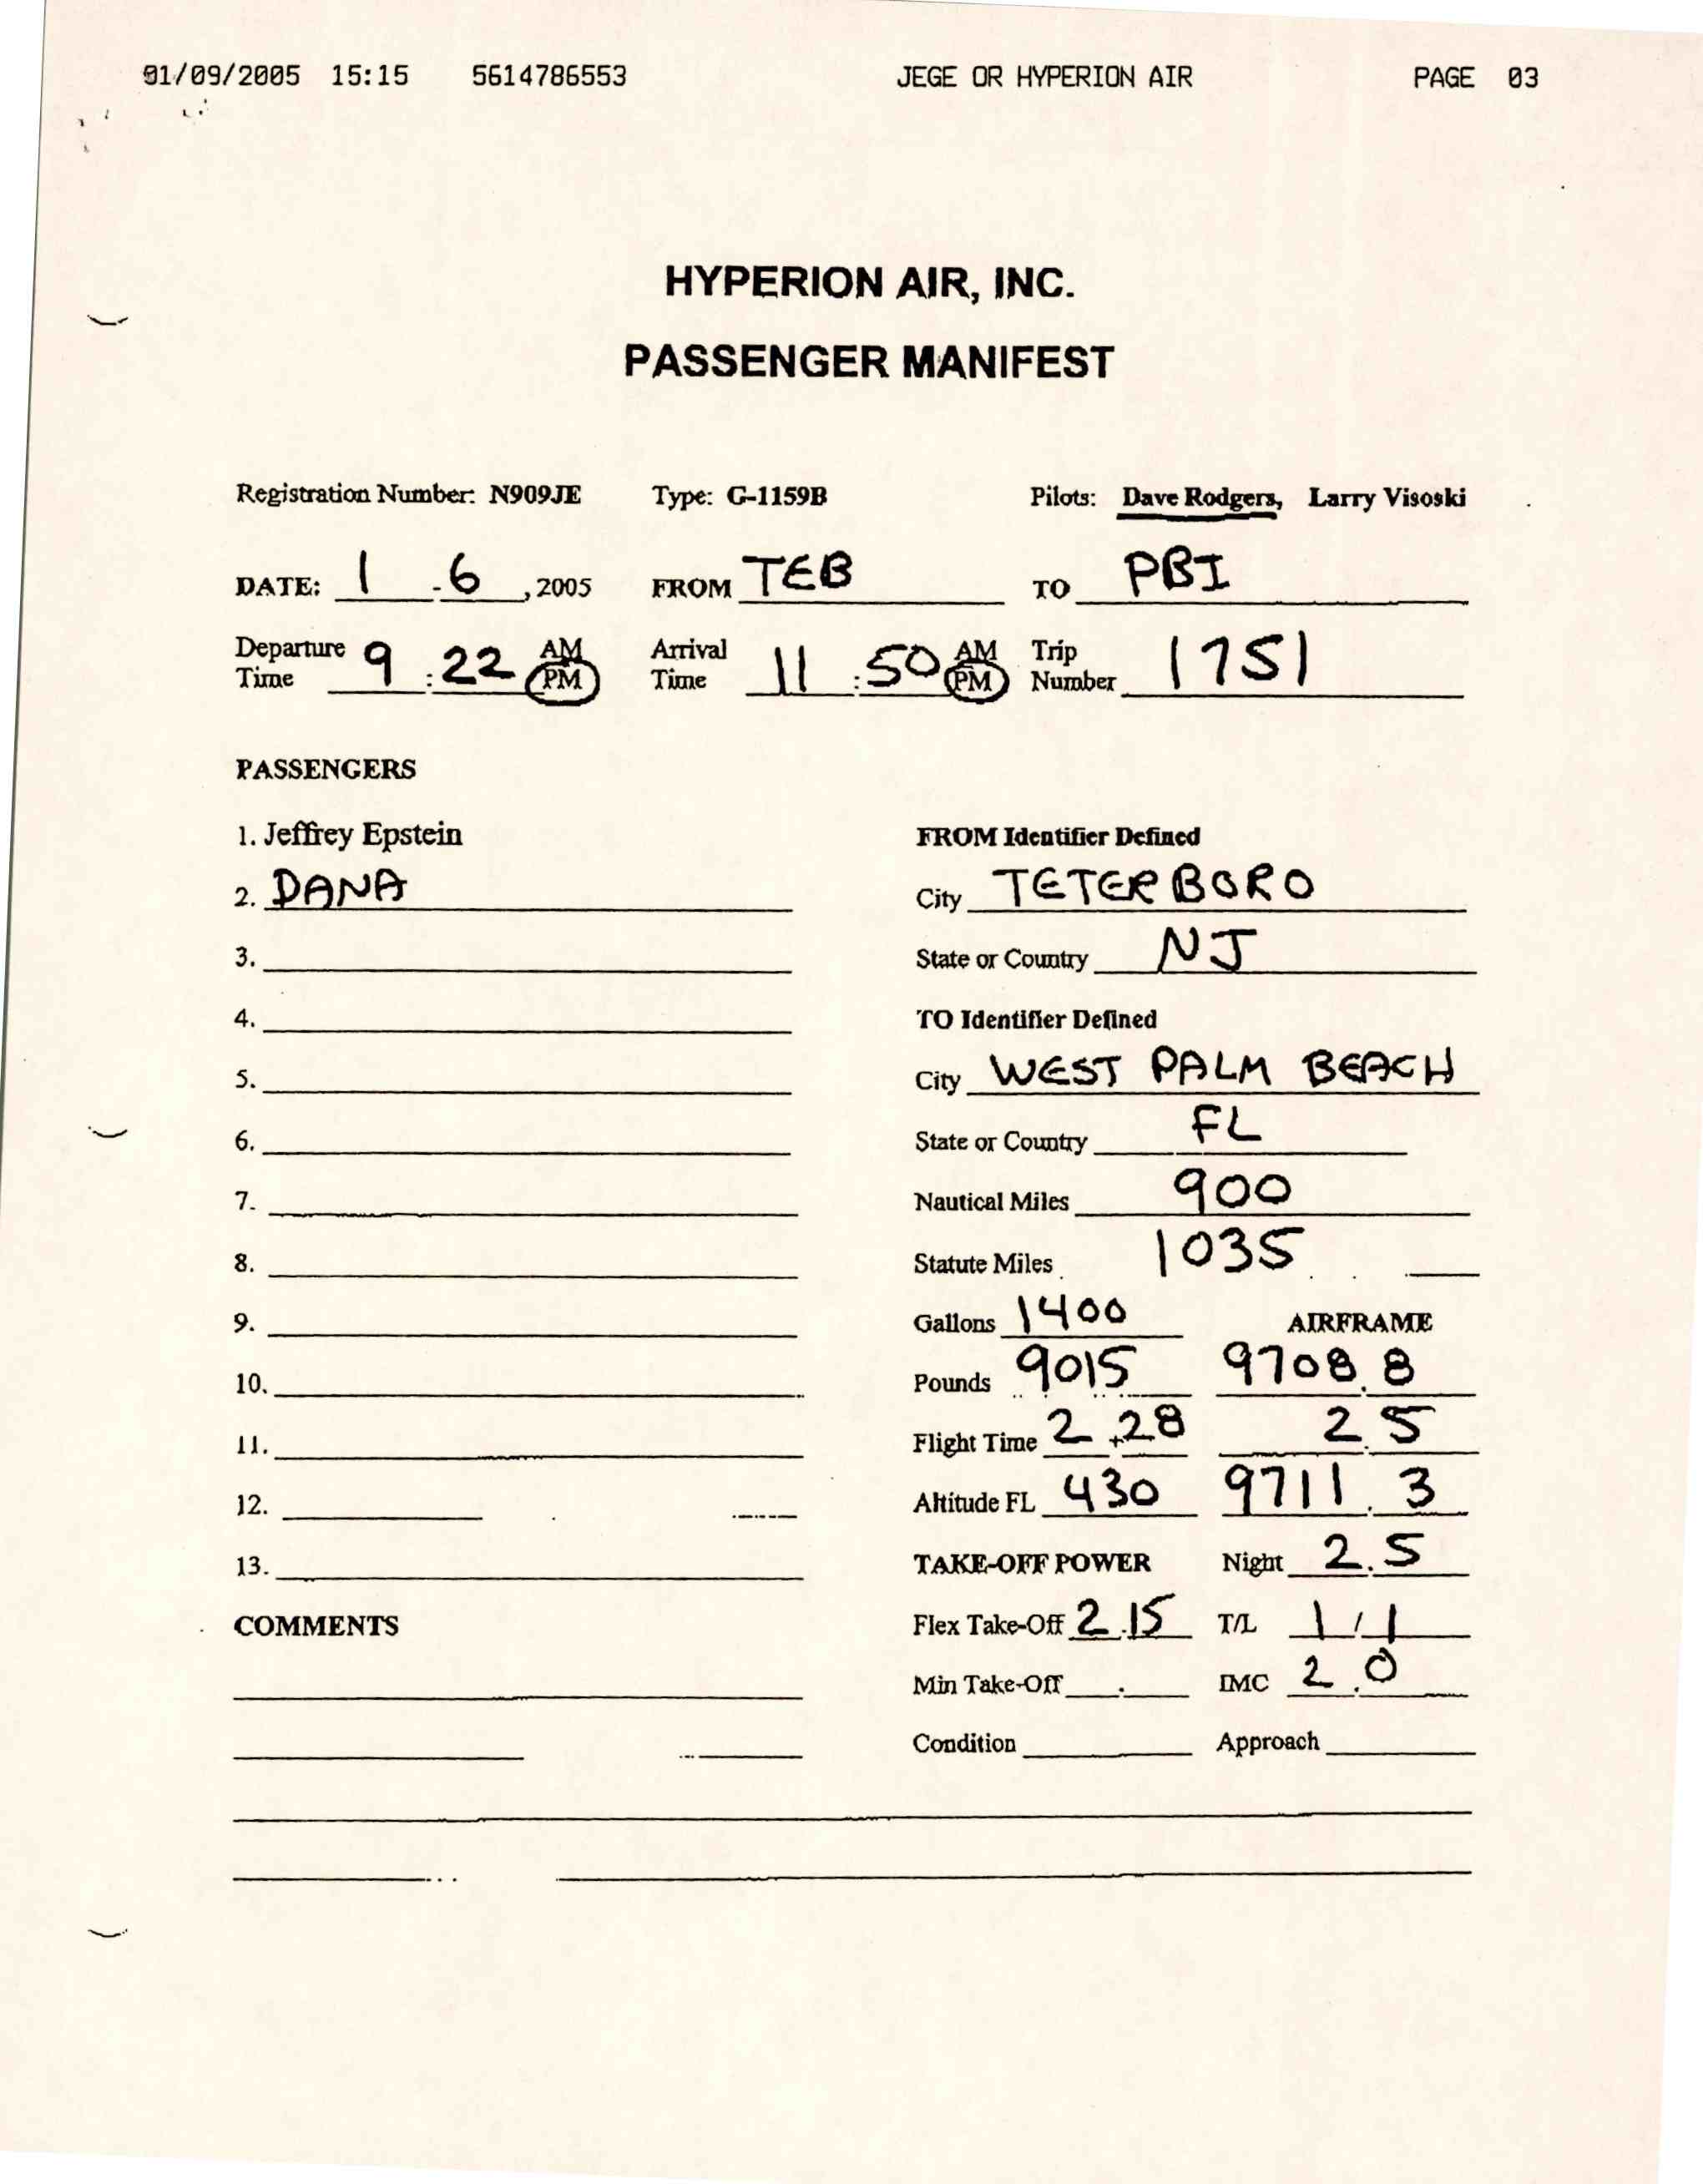 01/09/2005 15:15 5614786553 JEGE OR HYPERION AIR PAGE 03
HYPERION AIR, INC.
PASSENGER MANIFEST
Registration Number: N909JE Type: G-1159B Pilots: Dave Rodgers, Larry Visoski
DATE: 1 - 6 , 2005 FROM TEB TO PBI
Departure Time 9 : 22 AM PM Arrival Time 11 : 50 AM PM Trip Number 1751
PASSENGERS
1. Jeffrey Epstein FROM Identifier Defined
2. DANA City TETERBORO
3. State or Country NJ
4. TO Identifier Defined
5. City WEST PALM BEACH
6. State or Country FL
7. Nautical Miles 900
8. Statute Miles 1035
9. Gallons 1400 AIRFRAME
10. Pounds 9015 9708.8
11. Flight Time 2+28 2.5
12. Altitude FL 430 9711.3
13. TAKE-OFF POWER Night 2.5
COMMENTS Flex Take-Off 2.15 T/L 1/1
Min Take-Off . IMC 2.0
Condition Approach